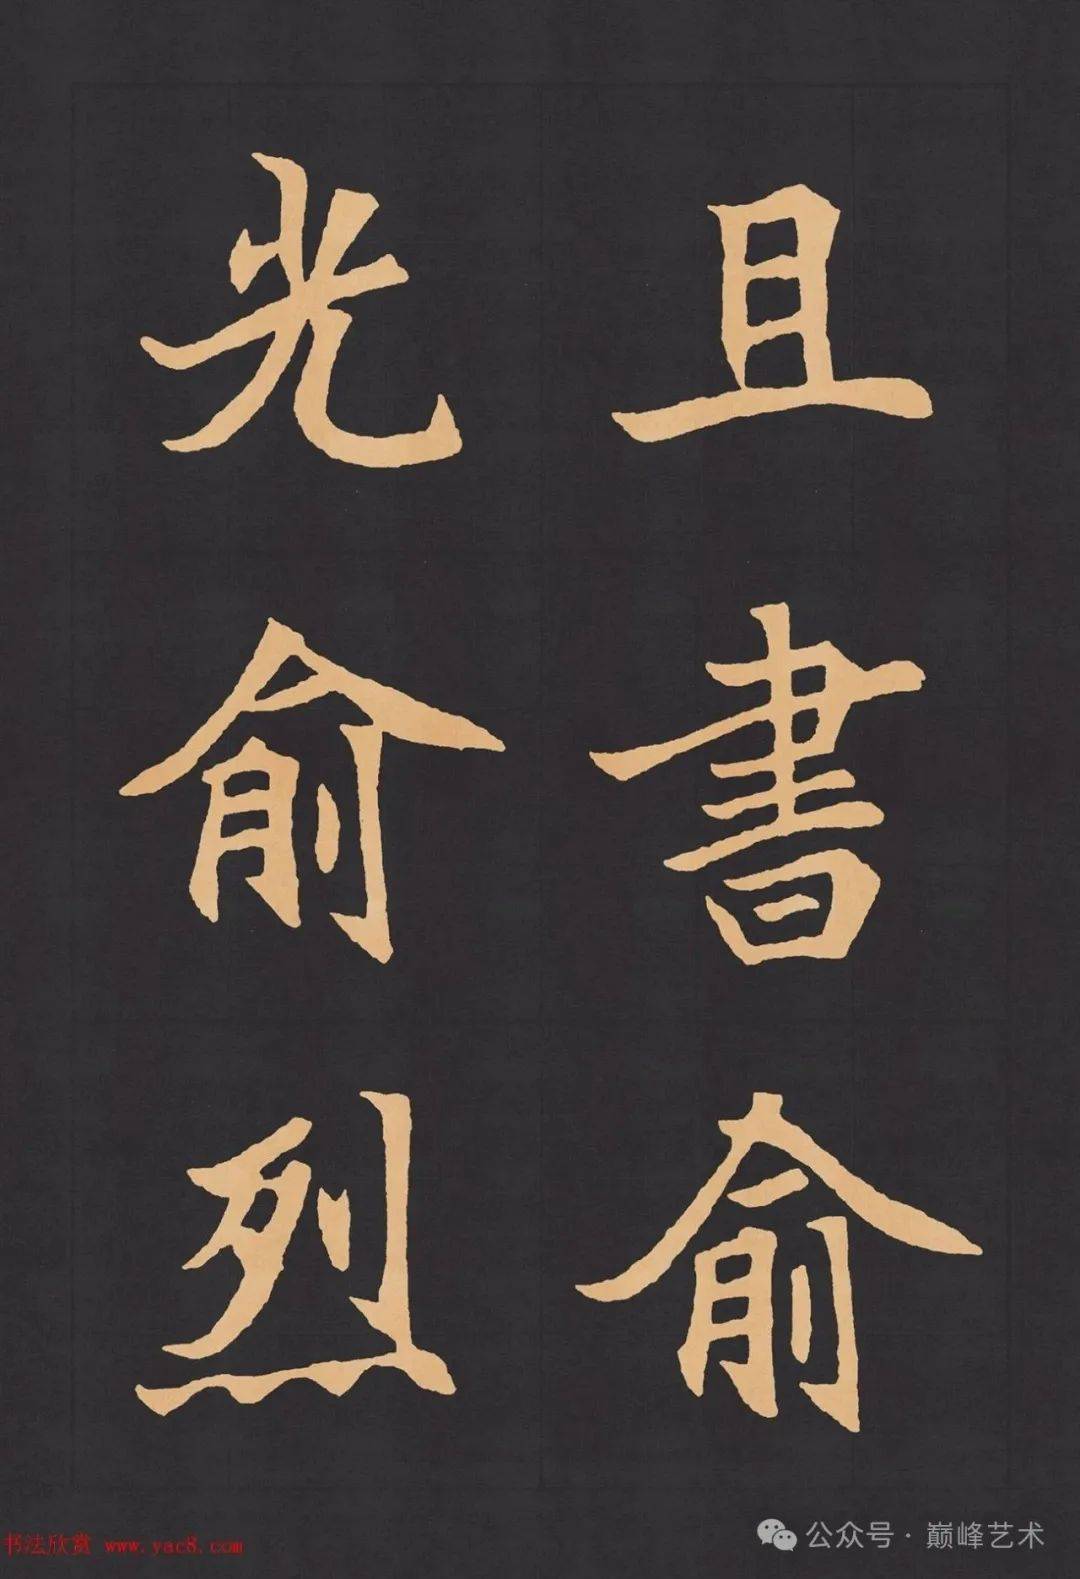 且書俞
光俞烈
书法欣赏 www.yac8.com
公众号·巅峰艺术